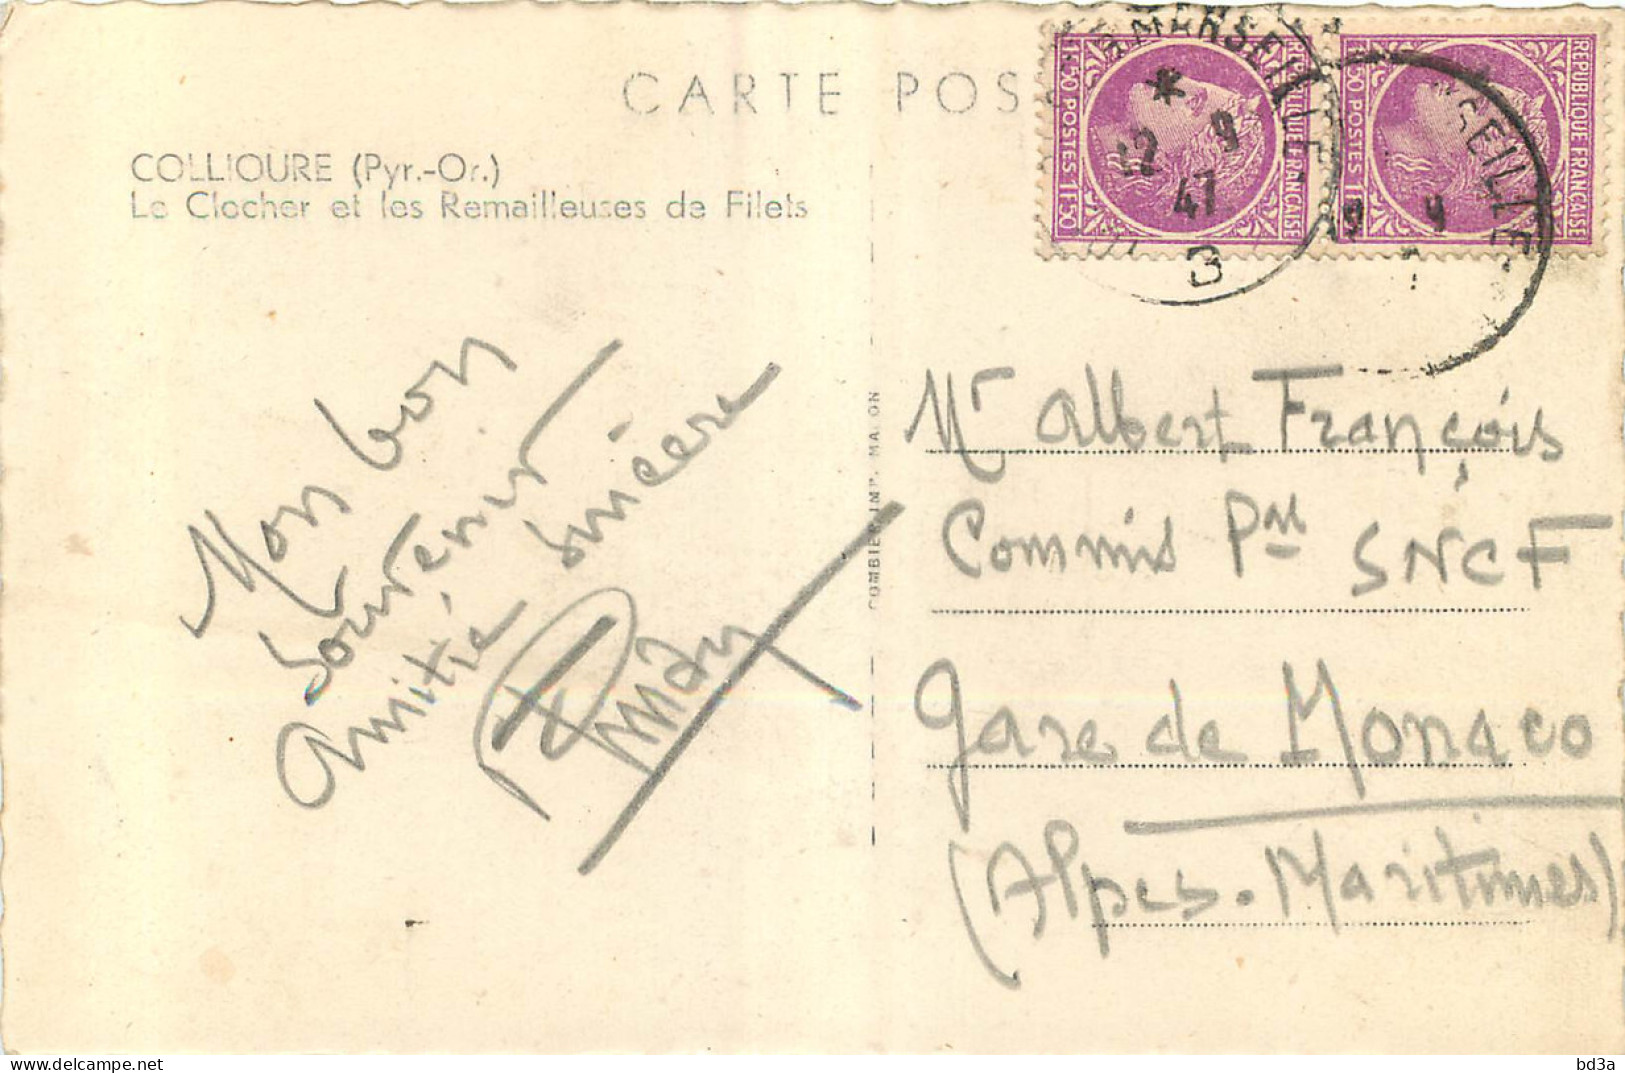 CARTE POS
COLLIOURE (Pyr.-Or.)
Le Clocher et les Remailleuses de Filets
RÉPUBLIQUE FRANÇAISE
1F50 POSTES 1F50
RÉPUBLIQUE FRANÇAISE
1F50 POSTES 1F50
MARSEILLE
*
12 9
47
3
Mon bon
Souvenir
Amitié sincère
COMBIER IMP. MACON
Mr Albert François
Commis Pal SNCF
Gare de Monaco
(Alpes-Maritimes)
delcampe.net
bd3a